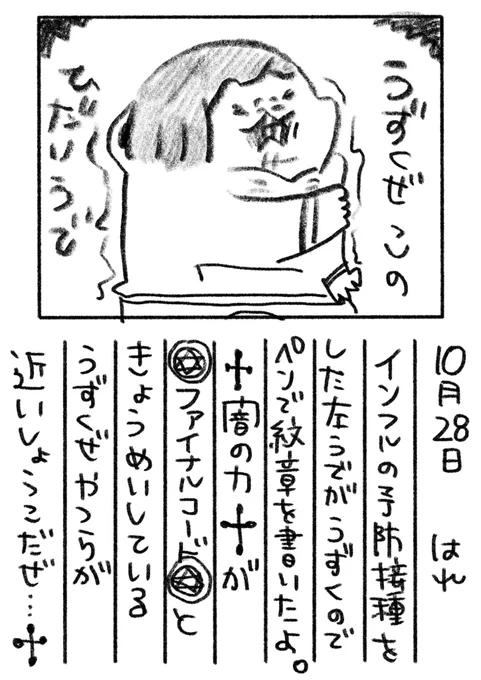 うずくぜ この
ひだりうで
10月28日 はれ
インフルの予防接種を
した左うでがうずくので
ペンで紋章を書いたよ。
闇の力が
ファイナルコードと
きょうめいしている
うずくぜ やつらが
近いしょうこだぜ…